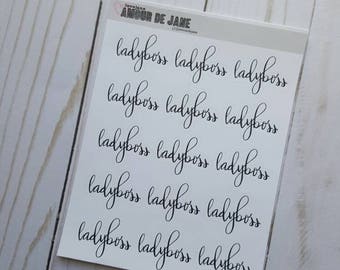 AMOUR DE JANE
ladyboss ladyboss ladyboss
ladyboss ladyboss ladyboss
ladyboss ladyboss ladyboss
ladyboss ladyboss ladyboss
ladyboss ladyboss ladyboss